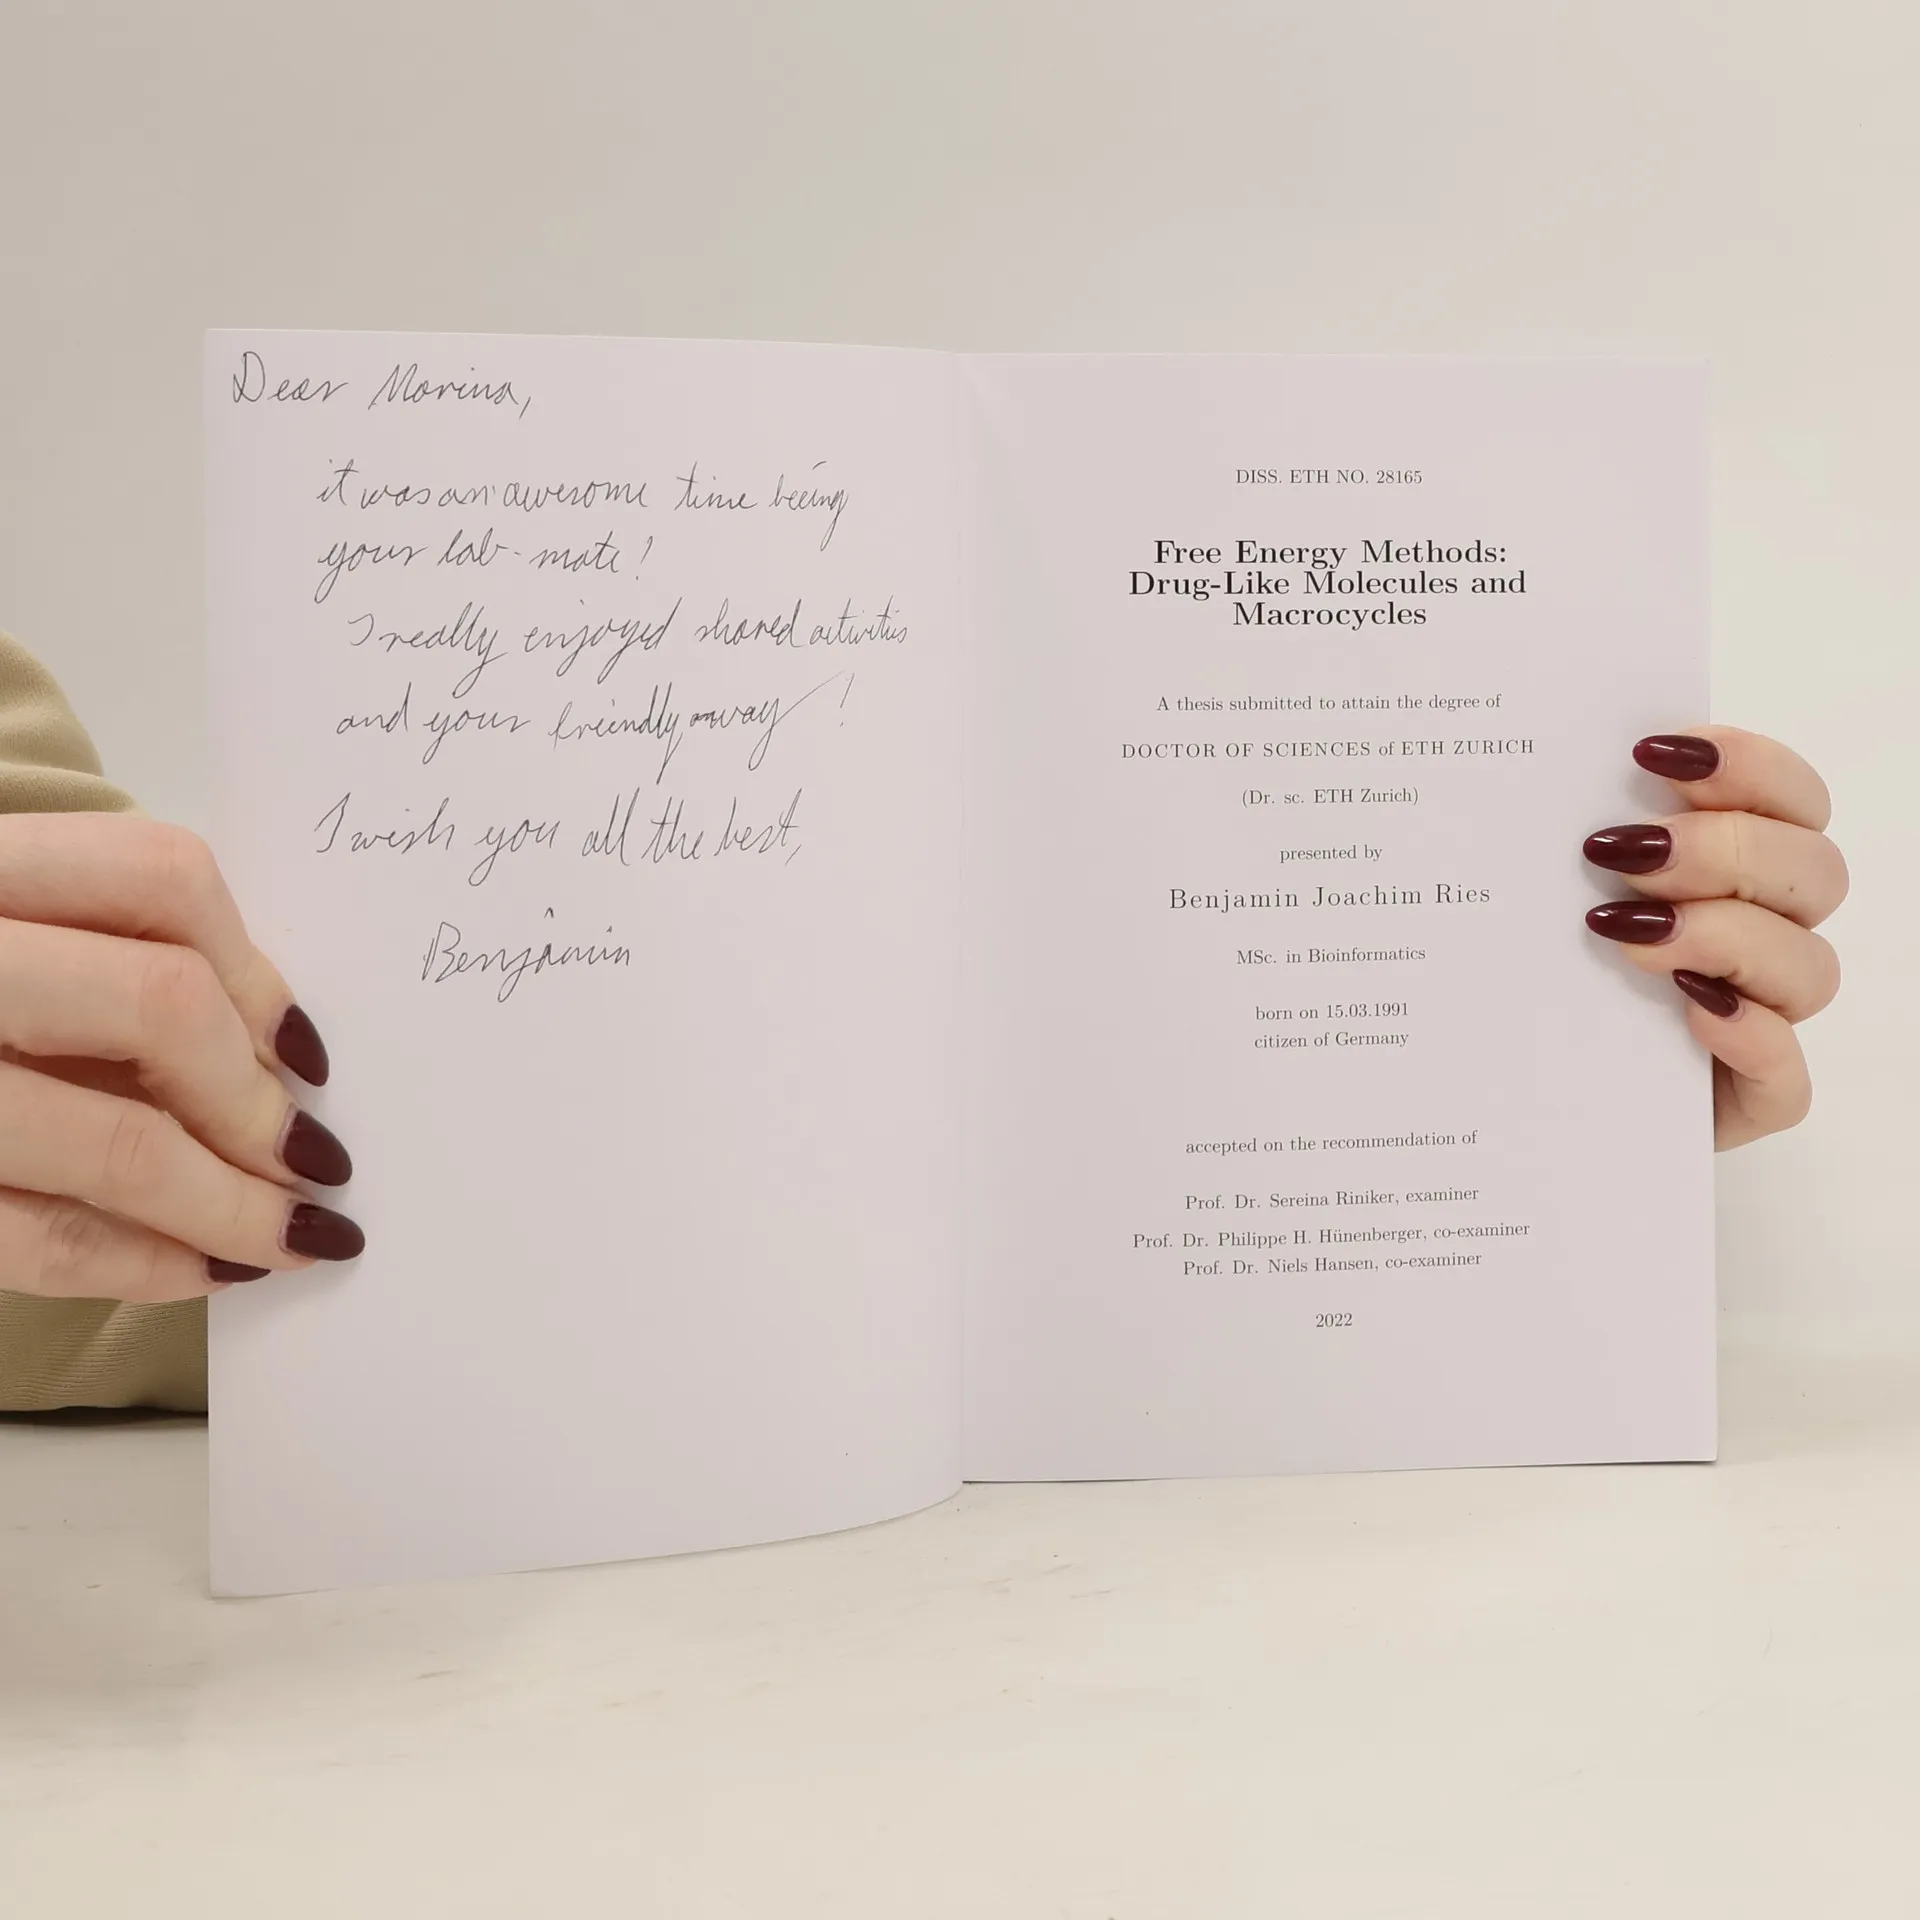 Dear Marina,
it was an awesome time beeing
your lab-mate!
I really enjoyed shared activities
and your friendly away!
I wish you all the best,
Benjamin
DISS. ETH NO. 28165
Free Energy Methods:
Drug-Like Molecules and
Macrocycles
A thesis submitted to attain the degree of
DOCTOR OF SCIENCES of ETH ZURICH
(Dr. sc. ETH Zurich)
presented by
Benjamin Joachim Ries
MSc. in Bioinformatics
born on 15.03.1991
citizen of Germany
accepted on the recommendation of
Prof. Dr. Sereina Riniker, examiner
Prof. Dr. Philippe H. Hünenberger, co-examiner
Prof. Dr. Niels Hansen, co-examiner
2022